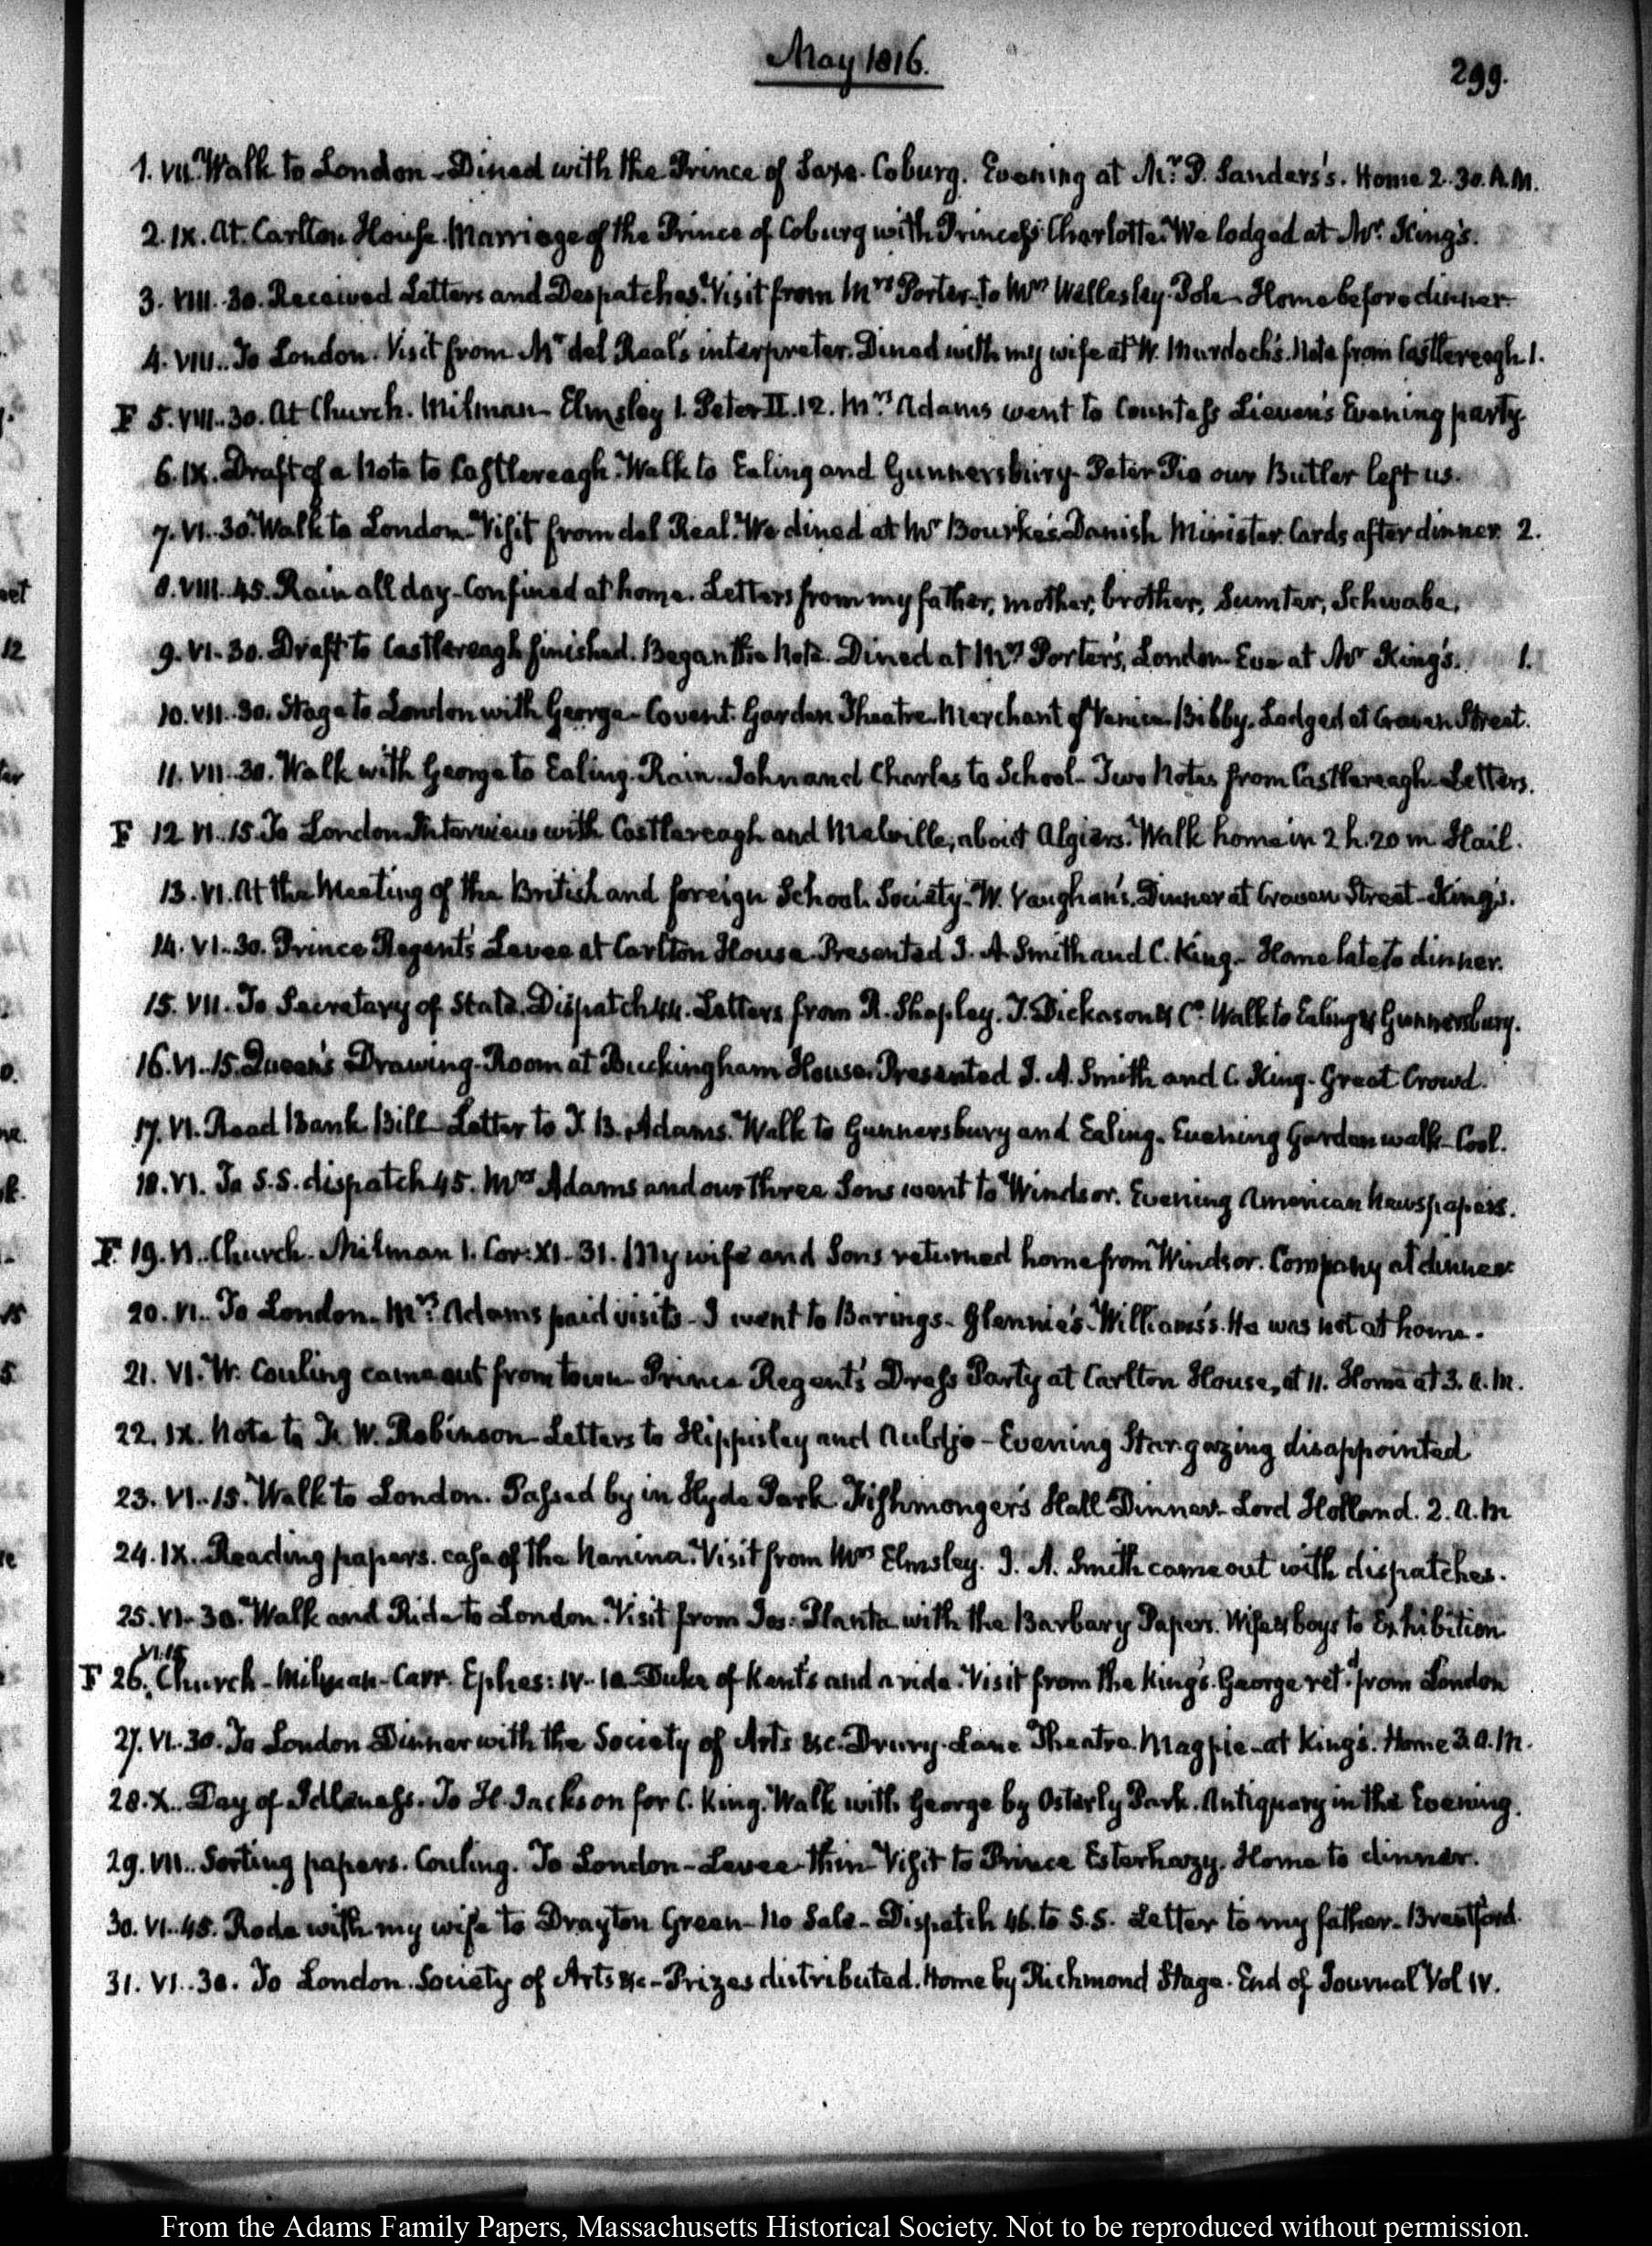 May 1816.
299.
1. VII. Walk to London - Dined with the Prince of Saxe-Coburg. Evening at Mr. P. Sanders's. Home 2.30. A.M.
2. IX. At Carlton House. Marriage of the Prince of Coburg with Princess Charlotte. We lodged at Mr. King's.
3. VIII.30. Received Letters and Despatches. Visit from Mrs Porter. To Mrs Wellesley-Pole - Home before dinner
4. VIII.. To London. Visit from Mr del Real's interpreter. Dined with my wife at W. Murdoch's. Note from Castlereagh. 1.
F 5. VIII..30. At Church. Milman - Elmsley 1. Peter II.12. Mrs Adams went to Countess Lieven's Evening party.
6. IX. Draft of a Note to Castlereagh. Walk to Ealing and Gunnersbury - Peter Pio our Butler left us.
7. VI..30. Walk to London - Visit from del Real. We dined at Mr Bourke's Danish Minister. Cards after dinner. 2.
8. VIII..45. Rain all day - Confined at home. Letters from my father, mother, brother, Sumter, Schwabe.
9. VI.30. Draft to Castlereagh finished. Began the Note. Dined at Mrs Porter's, London - Eve at Mr King's. 1.
10. VII..30. Stage to London with George - Covent Garden Theatre. Merchant of Venice. Bibby. Lodged at Craven Street.
11. VII..30. Walk with George to Ealing. Rain. John and Charles to School - Two Notes from Castlereagh - Letters.
F 12 VI..15. To London. Interview with Castlereagh and Melville, about Algiers. Walk home in 2 h. 20 m Hail.
13. VI. At the Meeting of the British and foreign School Society. W. Vaughan's. Dinner at Craven Street - King's.
14. VI..30. Prince Regent's Levee at Carlton House. Presented J. A. Smith and C. King - Home late to dinner.
15. VII. To Secretary of State. Dispatch 44. Letters from R. Shapley. T. Dickason & Co. Walk to Ealing & Gunnersbury.
16. VI..15. Queen's Drawing-Room at Buckingham House. Presented J. A. Smith and C. King - Great Crowd.
17. VI. Read Bank Bill - Letter to T. B. Adams. Walk to Gunnersbury and Ealing. Evening Garden walk - Cool.
18. VI. To S.S. dispatch 45. Mrs Adams and our three Sons went to Windsor. Evening American Newspapers.
F. 19. VI.. Church. Milman 1. Cor: XI. 31. My wife and Sons returned home from Windsor. Company at dinner
20. VI.. To London. Mrs. Adams paid visits - I went to Barings - Glennie's - Williams's. He was not at home.
21. VI. W. Couling came out from town - Prince Regent's Dress Party at Carlton House, at 11. Home at 3. A.M.
22. IX. Note to F. W. Robinson - Letters to Hippisley and Auldjo - Evening Star gazing disappointed
23. VI..15. Walk to London. Passed by in Hyde Park. Fishmonger's Hall Dinner - Lord Holland. 2. A.M
24. IX. Reading papers. case of the Nanina. Visit from Mrs Elmsley. J. A. Smith came out with dispatches.
25. VI.30. Walk and Ride to London. Visit from Jos: Planta with the Barbary Papers. Wife & boys to Exhibition
VI.15
F 26. Church - Milman - Carr. Ephes: IV. 10. Duke of Kent's and a ride. Visit from the King's. George retd. from London
27. VI..30. To London Dinner with the Society of Arts &c. Drury-Lane Theatre. Magpie - at King's. Home 3. A.M.
28. X.. Day of Idleness. To H. Jackson for C. King. Walk with George by Osterly Park. Antiquary in the Evening.
29. VII.. Sorting papers. Couling. To London - Levee thin - Visit to Prince Esterhazy. Home to dinner.
30. VI..45. Rode with my wife to Drayton Green - No Sale - Dispatch 46. to S.S. Letter to my father - Brentford.
31. VI..30. To London. Society of Arts &c - Prizes distributed. Home by Richmond Stage. End of Journal Vol IV.
From the Adams Family Papers, Massachusetts Historical Society. Not to be reproduced without permission.